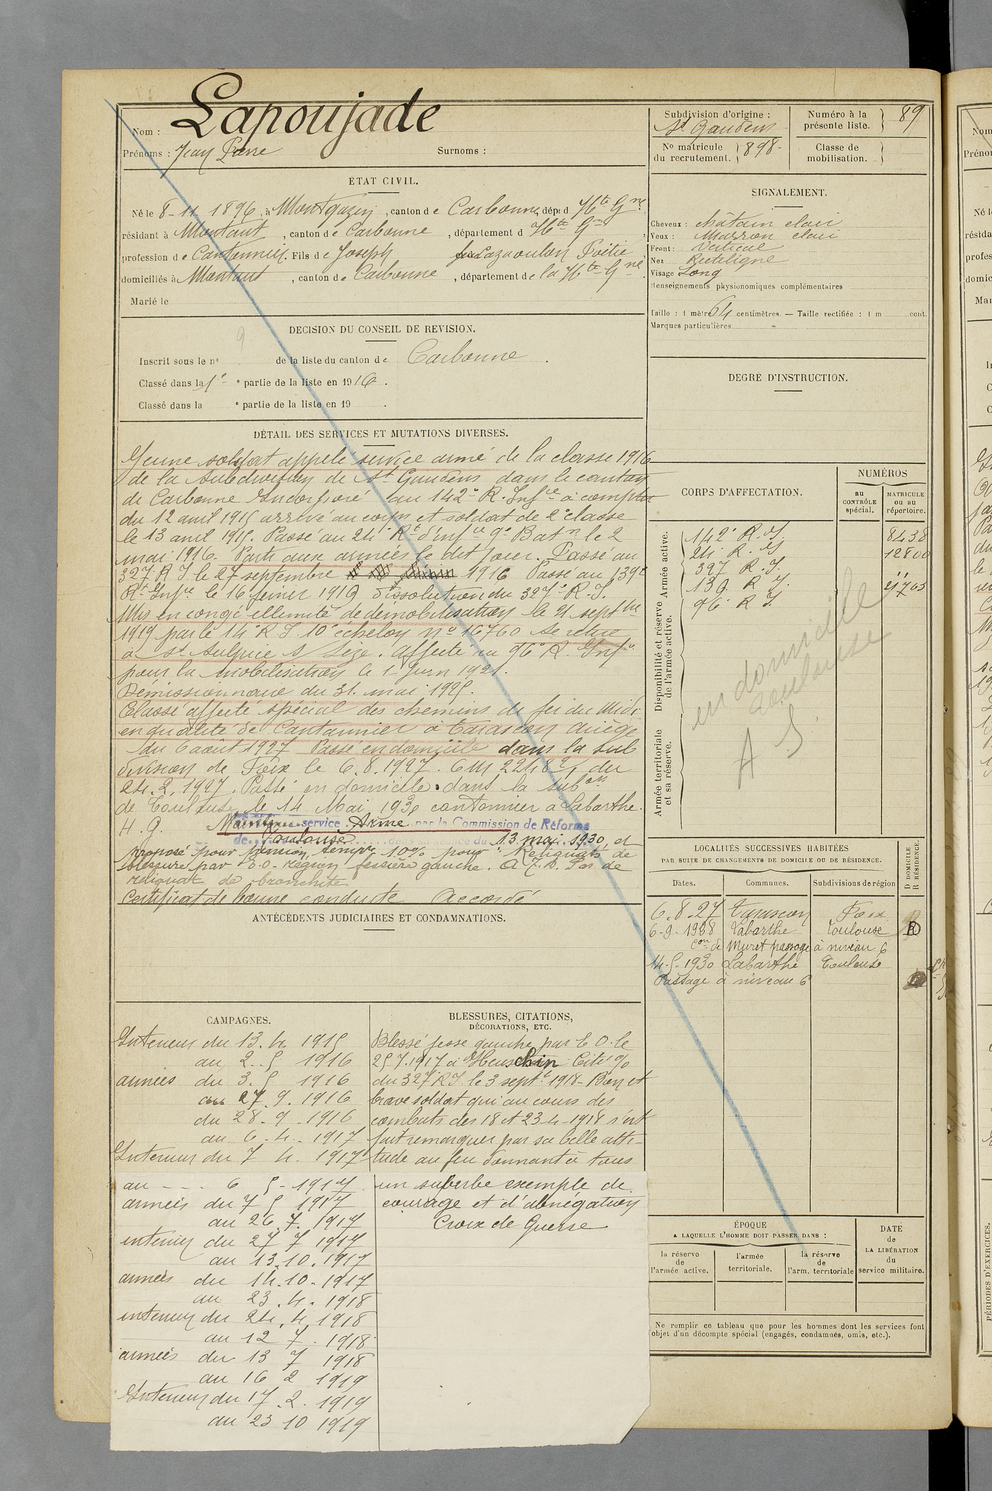 Nom : Lapoujade
Prénoms : Jean Pierre Surnoms :
ETAT CIVIL.
Né le 8-11 1896, à Montgazin, canton de Carbonne, dép. d Hte Gne
résidant à Montaut, canton de Carbonne, département d Hte Gne
profession de Cantonnier. Fils de Joseph
domiciliés à Montaut, canton de Carbonne, département de la Hte Gne
Marié le
DECISION DU CONSEIL DE REVISION.
9
Inscrit sous le n° de la liste du canton de Carbonne.
Classé dans la 1e partie de la liste en 1916.
Classé dans la e partie de la liste en 19 .
DÉTAIL DES SERVICES ET MUTATIONS DIVERSES.
Jeune soldat appelé service armé de la classe 1916
de la subdivision de St Gaudens dans le canton
de Carbonne Incorporé au 142e R. Infrie à compter
du 12 avril 1915 arrivé au corps et soldat de 2e classe
le 13 avril 1915. Passé au 24e Rt d'infie 9e Batn le 2
mai 1916. Parti aux armées le dit jour. Passé au
327 R I. le 27 septembre 1916 Passé au 139e
Rt Infie le 16 février 1919 dissolution du 327e R. I.
Mis en congé illimité de démobilisation le 21 septbre
1919 par le 14e R I 10e échelon no 16760 Se retire
à St Sulpice s/ Lèze. Affecté au 96e R. Infie
pour la mobilisation le 1er Juin 1921.
du 31 mai 1925.
Classé affecté spécial des chemins de fer du Midi
en qualité de Cantonnier à Tarascon Ariège
du 6 août 1927 Passé en domicile dans la sub
division de Foix le 6.8.1927.
24.2.1927. Passé en domicile dans la subon
de Toulouse le 14 Mai 1930 cantonnier à Labarthe
H. G. Maintenu service Armé par la Commission de Réforme
de Toulouse du 13 mai 1930, et
proposé pour pension tempre 10% pour "Reliquats de
blessure par E.O. région fessière gauche. Pas de
reliquat de bronchite
Certificat de bonne conduite Accordé
ANTÉCÉDENTS JUDICIAIRES ET CONDAMNATIONS.
CAMPAGNES.
Intérieur du 13. 4. 1915
au 2. 5 1916
armées du 3. 5 1916
au 27. 9. 1916
du 28. 9. 1916
au 6. 4. 1917
Intérieur du 7 4. 1917
au - - - 6 5 - 1917
armées du 7 5 1917
au 26. 7. 1917
intérieur du 27 7 1917
au 13. 10. 1917
armées du 14. 10. 1917
au 23. 4. 1918
intérieur du 24. 4. 1918
au 12 7. 1918
armées du 13 7 1918
au 16 2 1919
Intérieur du 17. 2. 1919
au 23 10 1919
BLESSURES, CITATIONS,
DÉCORATIONS, ETC.
Blessé fesse gauche par E. O. le
25 7.1917 à Cité %
du 327 R I le 3 septe 1918 - Bon et
brave soldat qui au cours des
combats des 18 et 23-4-1918 s'est
fait remarquer par sa belle atti-
tude au feu donnant à tous
un superbe exemple de
courage et d'abnégation
Croix de Guerre
Subdivision d'origine :
St Gaudens
No matricule
du recrutement. 898
Numéro à la
présente liste. 89
Classe de
mobilisation.
SIGNALEMENT.
Cheveux : châtain clair
Yeux : Marron clair
Front : Vertical
Nez Rectiligne
Visage Long
Renseignements physionomiques complémentaires
Taille : 1 mètre 64 centimètres. — Taille rectifiée : 1 m cent.
Marques particulières
DEGRE D'INSTRUCTION.
CORPS D'AFFECTATION.
NUMÉROS
au
CONTRÔLE
spécial.
MATRICULE
ou au
répertoire.
Disponibilité et réserve de l'armée active.
Armée active.
Armée territoriale et sa réserve.
142e R. I. 8438
24e R. I 12800
327 R. I. "
139 R. I. 21703
96e R I
en domicile
Toulouse
A S
LOCALITÉS SUCCESSIVES HABITÉES
PAR SUITE DE CHANGEMENTS DE DOMICILE OU DE RÉSIDENCE.
Dates. Communes. Subdivisions de région D. DOMICILE R. RÉSIDENCE.
6. 8. 27 Tarascon Foix
6-9-1928 Labarthe Toulouse D
Con de Muret passage à niveau 6
14-5-1930 Labarthe Toulouse
Passage à niveau 6
ÉPOQUE
A LAQUELLE L'HOMME DOIT PASSER DANS :
la réserve
de l'armée active.
l'armée
territoriale.
la réserve de
l'arm. territoriale
DATE
de
LA LIBÉRATION
du
service militaire.
Ne remplir ce tableau que pour les hommes dont les services font
objet d'un décompte spécial (engagés, condamnés, omis, etc.).
PÉRIODES D'EXERCICES.